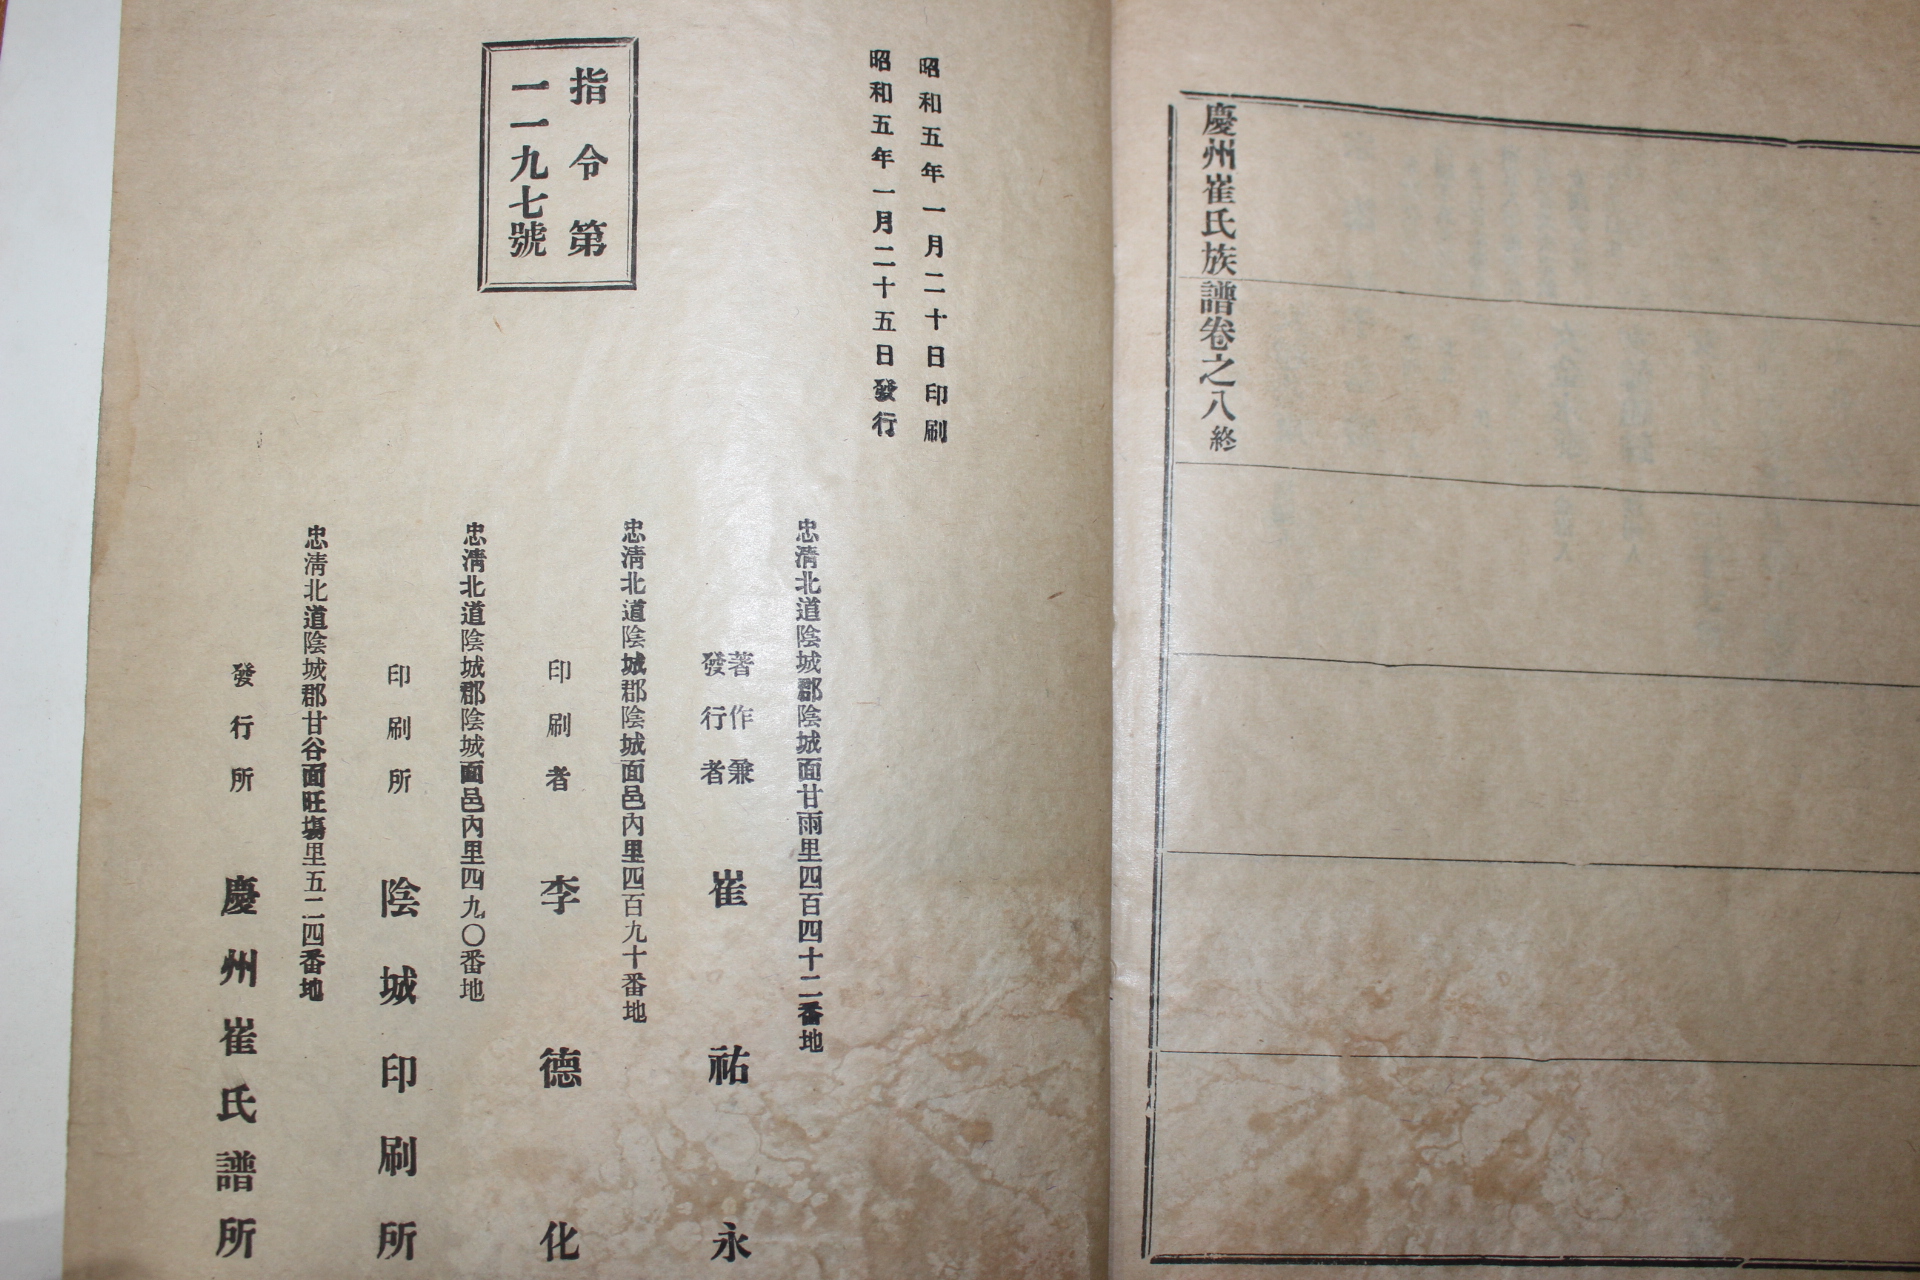 慶州崔氏族譜卷之八終
昭和五年一月二十日印刷
昭和五年一月二十五日發行
指令第
一一九七號
忠淸北道陰城郡陰城面甘雨里四百四十二番地
著作兼
發行者
崔祐永
忠淸北道陰城郡陰城面邑內里四百九十番地
印刷者 李德化
忠淸北道陰城郡陰城面邑內里四九〇番地
印刷所 陰城印刷所
忠淸北道陰城郡甘谷面旺塲里五二四番地
發行所 慶州崔氏譜所